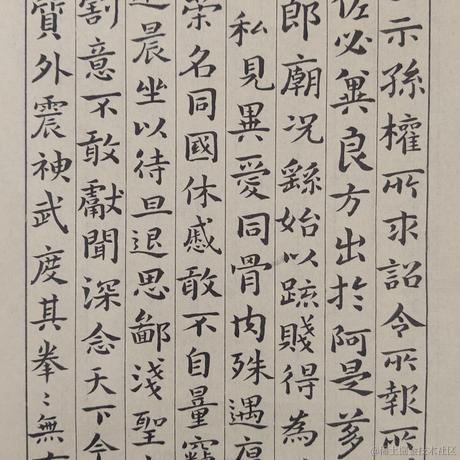 示孫權所求詔令所報所
佐必冀良方出於阿是芻
郎廟況繇始以疏賤得為
私見異愛同骨肉殊遇
榮名同國休戚敢不自量竊
晨坐以待旦退思鄙淺聖
割意不敢獻聞深念天下今
質外震神武度其拳〻無
@稀土掘金技术社区